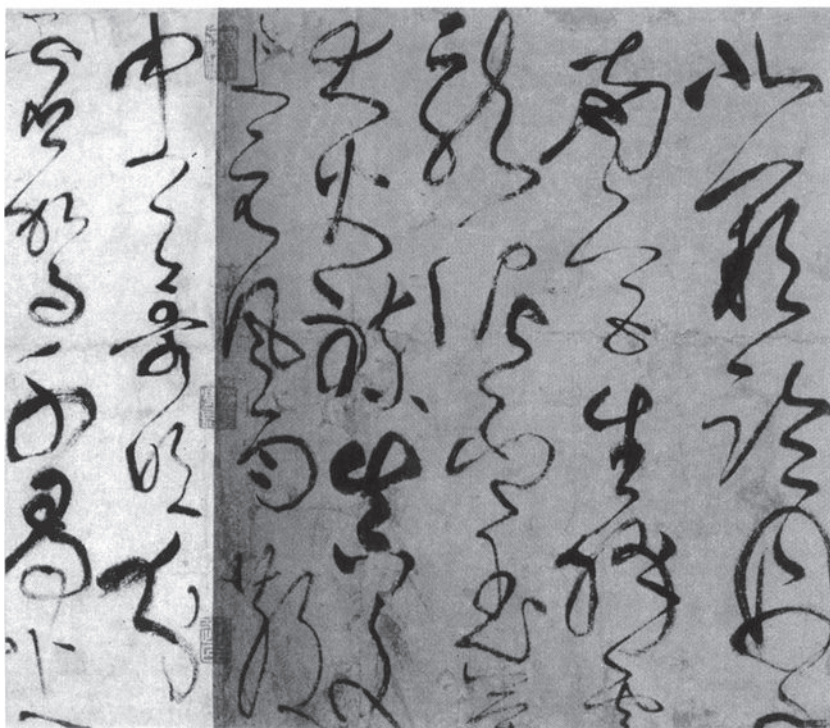 北闕臨丹水
南宮生絳雲
龍泥印玉
大火煉真文
上元風雨散
中天哥吹分
虛駕千尋上